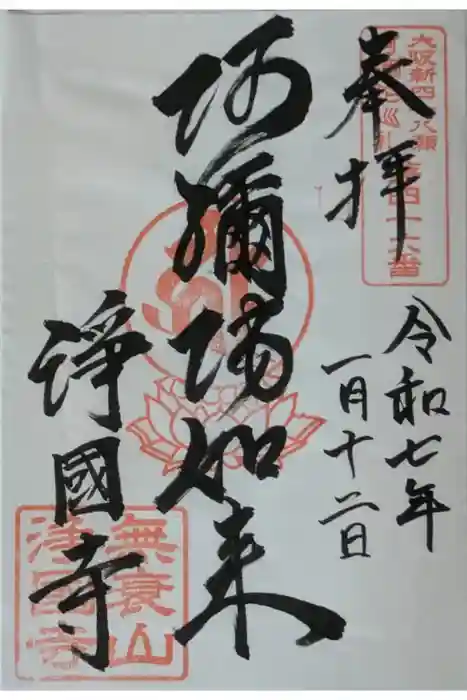 奉拝
令和七年
一月十二日
阿彌陽如来
浄國寺
大阪新四十八願
第四十六番
無衰山
浄國寺